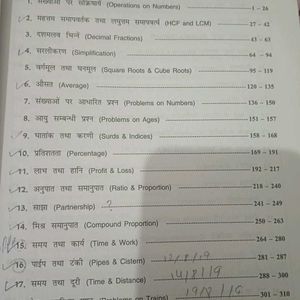 1. संख्याओं पर संक्रियाएं (Operations on Numbers) 1 - 26
2. महत्तम समापवर्तक तथा लघुत्तम समापवर्त्य (HCF and LCM) 27 - 42
3. दशमलव भिन्नें (Decimal Fractions) 43 - 63
4. सरलीकरण (Simplification) 64 - 94
5. वर्गमूल तथा घनमूल (Square Roots & Cube Roots) 95 - 119
6. औसत (Average) 120 - 135
7. संख्याओं पर आधारित प्रश्न (Problems on Numbers) 136 - 150
8. आयु सम्बन्धी प्रश्न (Problems on Ages) 151 - 157
9. घातांक तथा करणी (Surds & Indices) 158 - 168
10. प्रतिशतता (Percentage) 169 - 191
11. लाभ तथा हानि (Profit & Loss) 192 - 217
12. अनुपात तथा समानुपात (Ratio & Proportion) 218 - 240
13. साझा (Partnership) ? 241 - 249
14. मिश्र समानुपात (Compound Proportion) 250 - 263
15. समय तथा कार्य (Time & Work) 264 - 280
16. पाईप तथा टंकी (Pipes & Cistern) 13/8/19 281 - 287
17. समय तथा दूरी (Time & Distance) 14/8/19 288 - 300
(Problems on Trains) 19/8/19 301 - 310